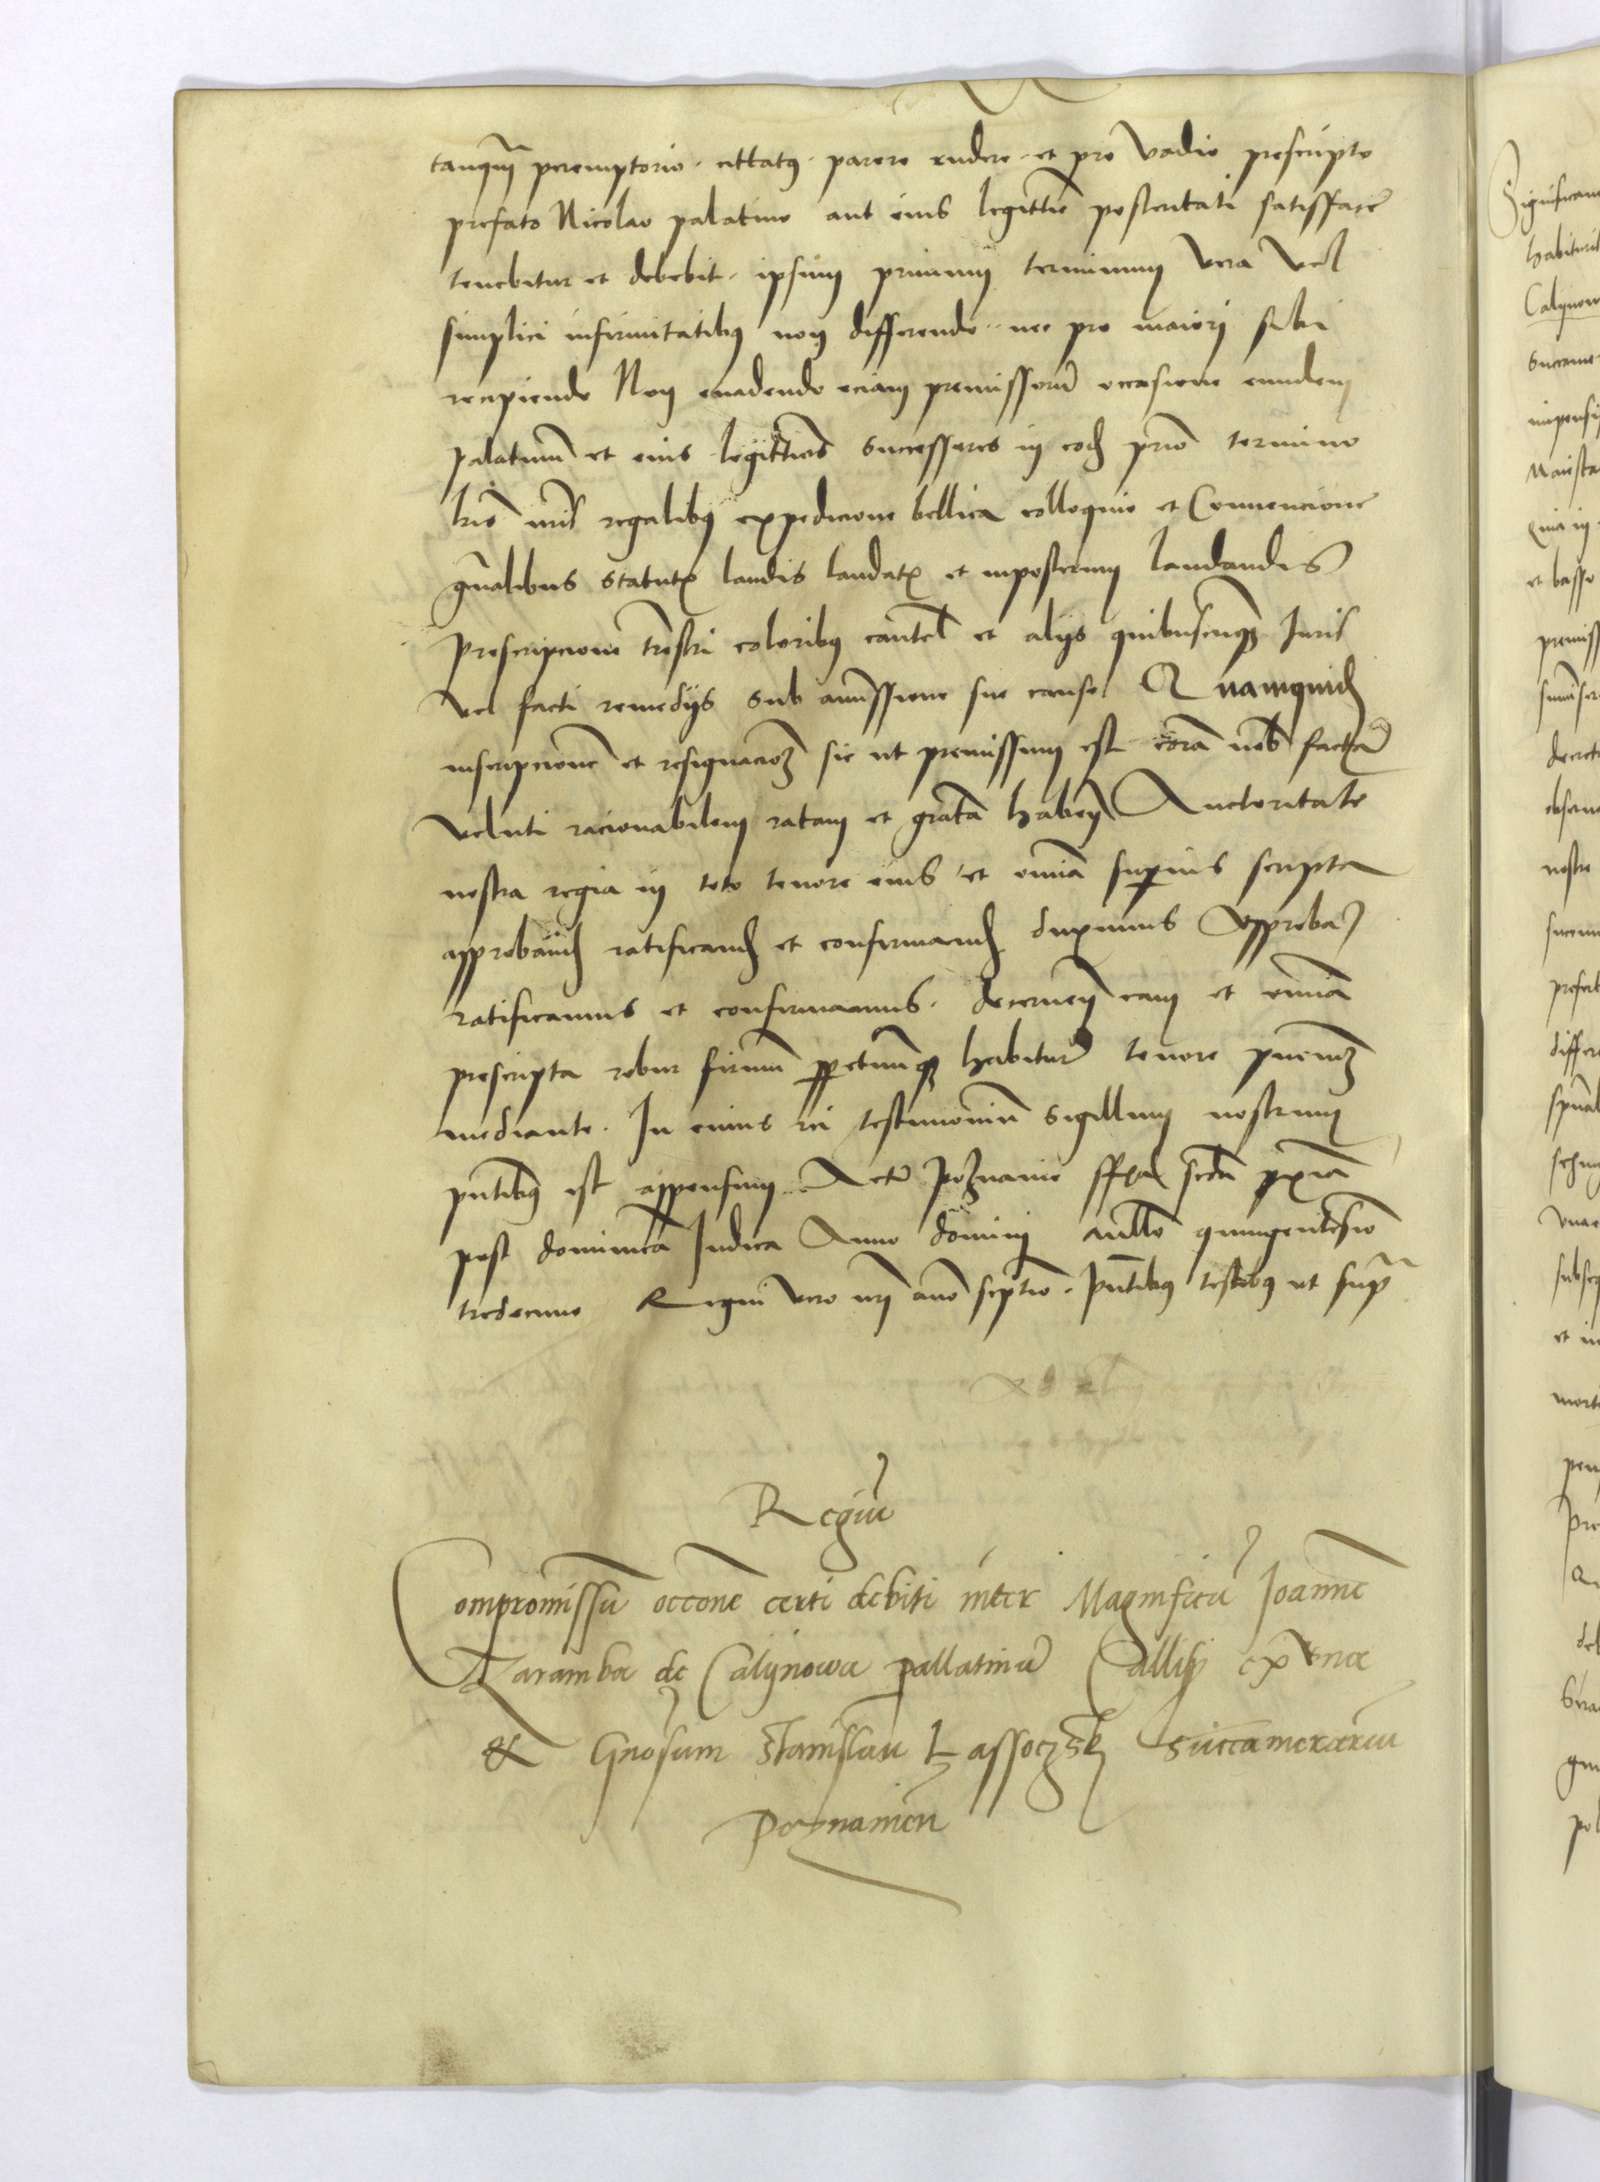 tanqm peremptorio. citatus. parere rndere. et pro vadio prescripto
prefato Nicolao palatino aut eius legittie posteritati satisffacere
tenebitur et debebit. ipsum primum terminum vera vel
simplici infirmitatibus non differendo. nec pro maiori sibi
recipiendo Non evadendo eciam premissorum occasione eundem
palatinum et eius legittimos successores in eodem prio termino
lris nris regalibus expedicione bellica colloquio et Convencione
gnalibus statutis laudis laudatis et inposterum laudandis
prescripcione trestri coloribus cautel et alijs quibuscunque Juris
vel facti remedijs sub amissione sue cause Quamquid
inscripcionem et resignacionem sic ut premissum est cora nob factam
veluti racionabilem ratam et grata haben Auctoritate
nostra regia in toto tenore eius et omia superius scripta
approband ratificand et confirmand duximus Approbam
ratificamus et confirmamus. decernen eam et omia
prescripta robur firmum perpetuumque habitura tenore pncium
mediante. In cuius rei testimonium Sigillum nostrum
pntibus est appensum. Actum Poznanie feria scda pxia
post dominica Judica Anno domini millo quingentesimo
tredecimo Regni vero nri ano septimo. Pntibus testibus ut supra
Regiu
Compromissu occone certi debiti inter Magnificu Joanne
Zaramba de Calijnowa pallatinu Callis ex vna
& Gnosum Stanislau Lassoczsk Succamerariu
Poznanien